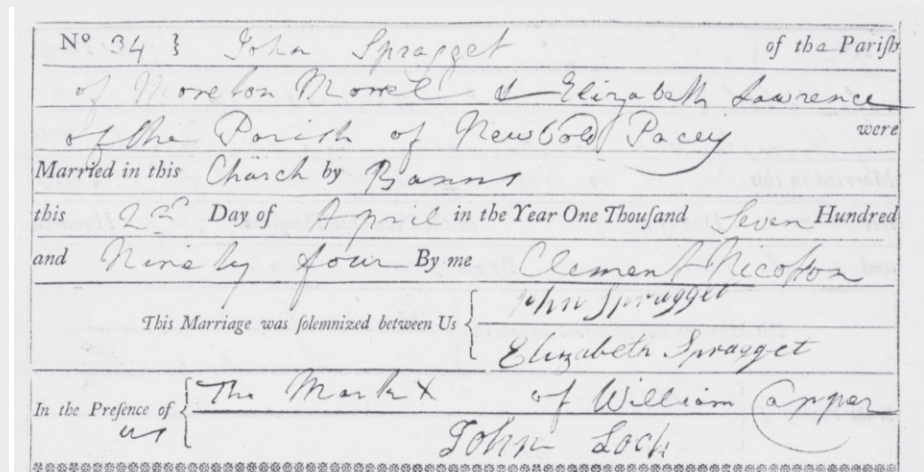 No 34 } John Spragget of the Pariſh
of Moreton Morrel & Elizabeth Lawrence
of the Parish of Newbold Pacey were
Married in this Church by Banns
this 2d Day of April in the Year One Thouſand Seven Hundred
and Ninety four By me Clement
This Marriage was ſolemnized between Us { John Spragget
Elizabeth Spragget
In the Preſence of us { The Mark X of William Capper
John Lock